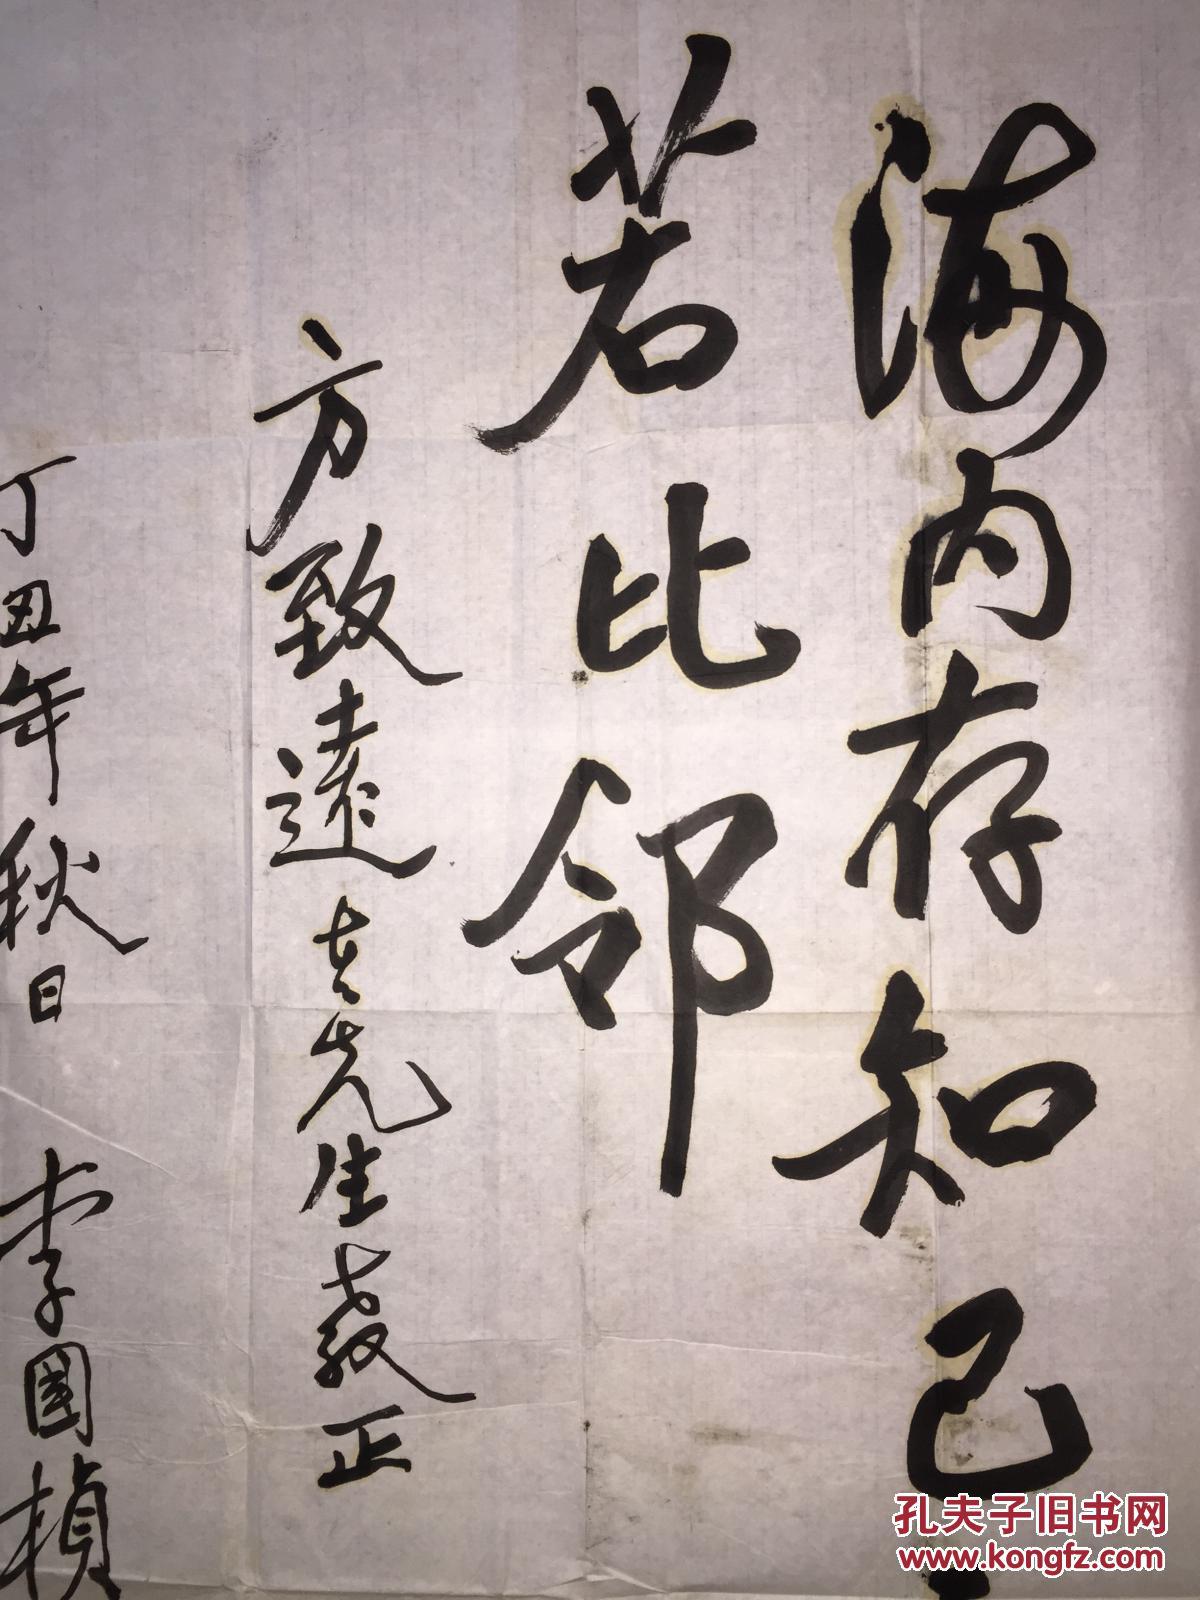 海内存知己
若比邻
方致遠老先生教正
丁丑年秋日 李國楨
孔夫子旧书网
www.kongfz.com